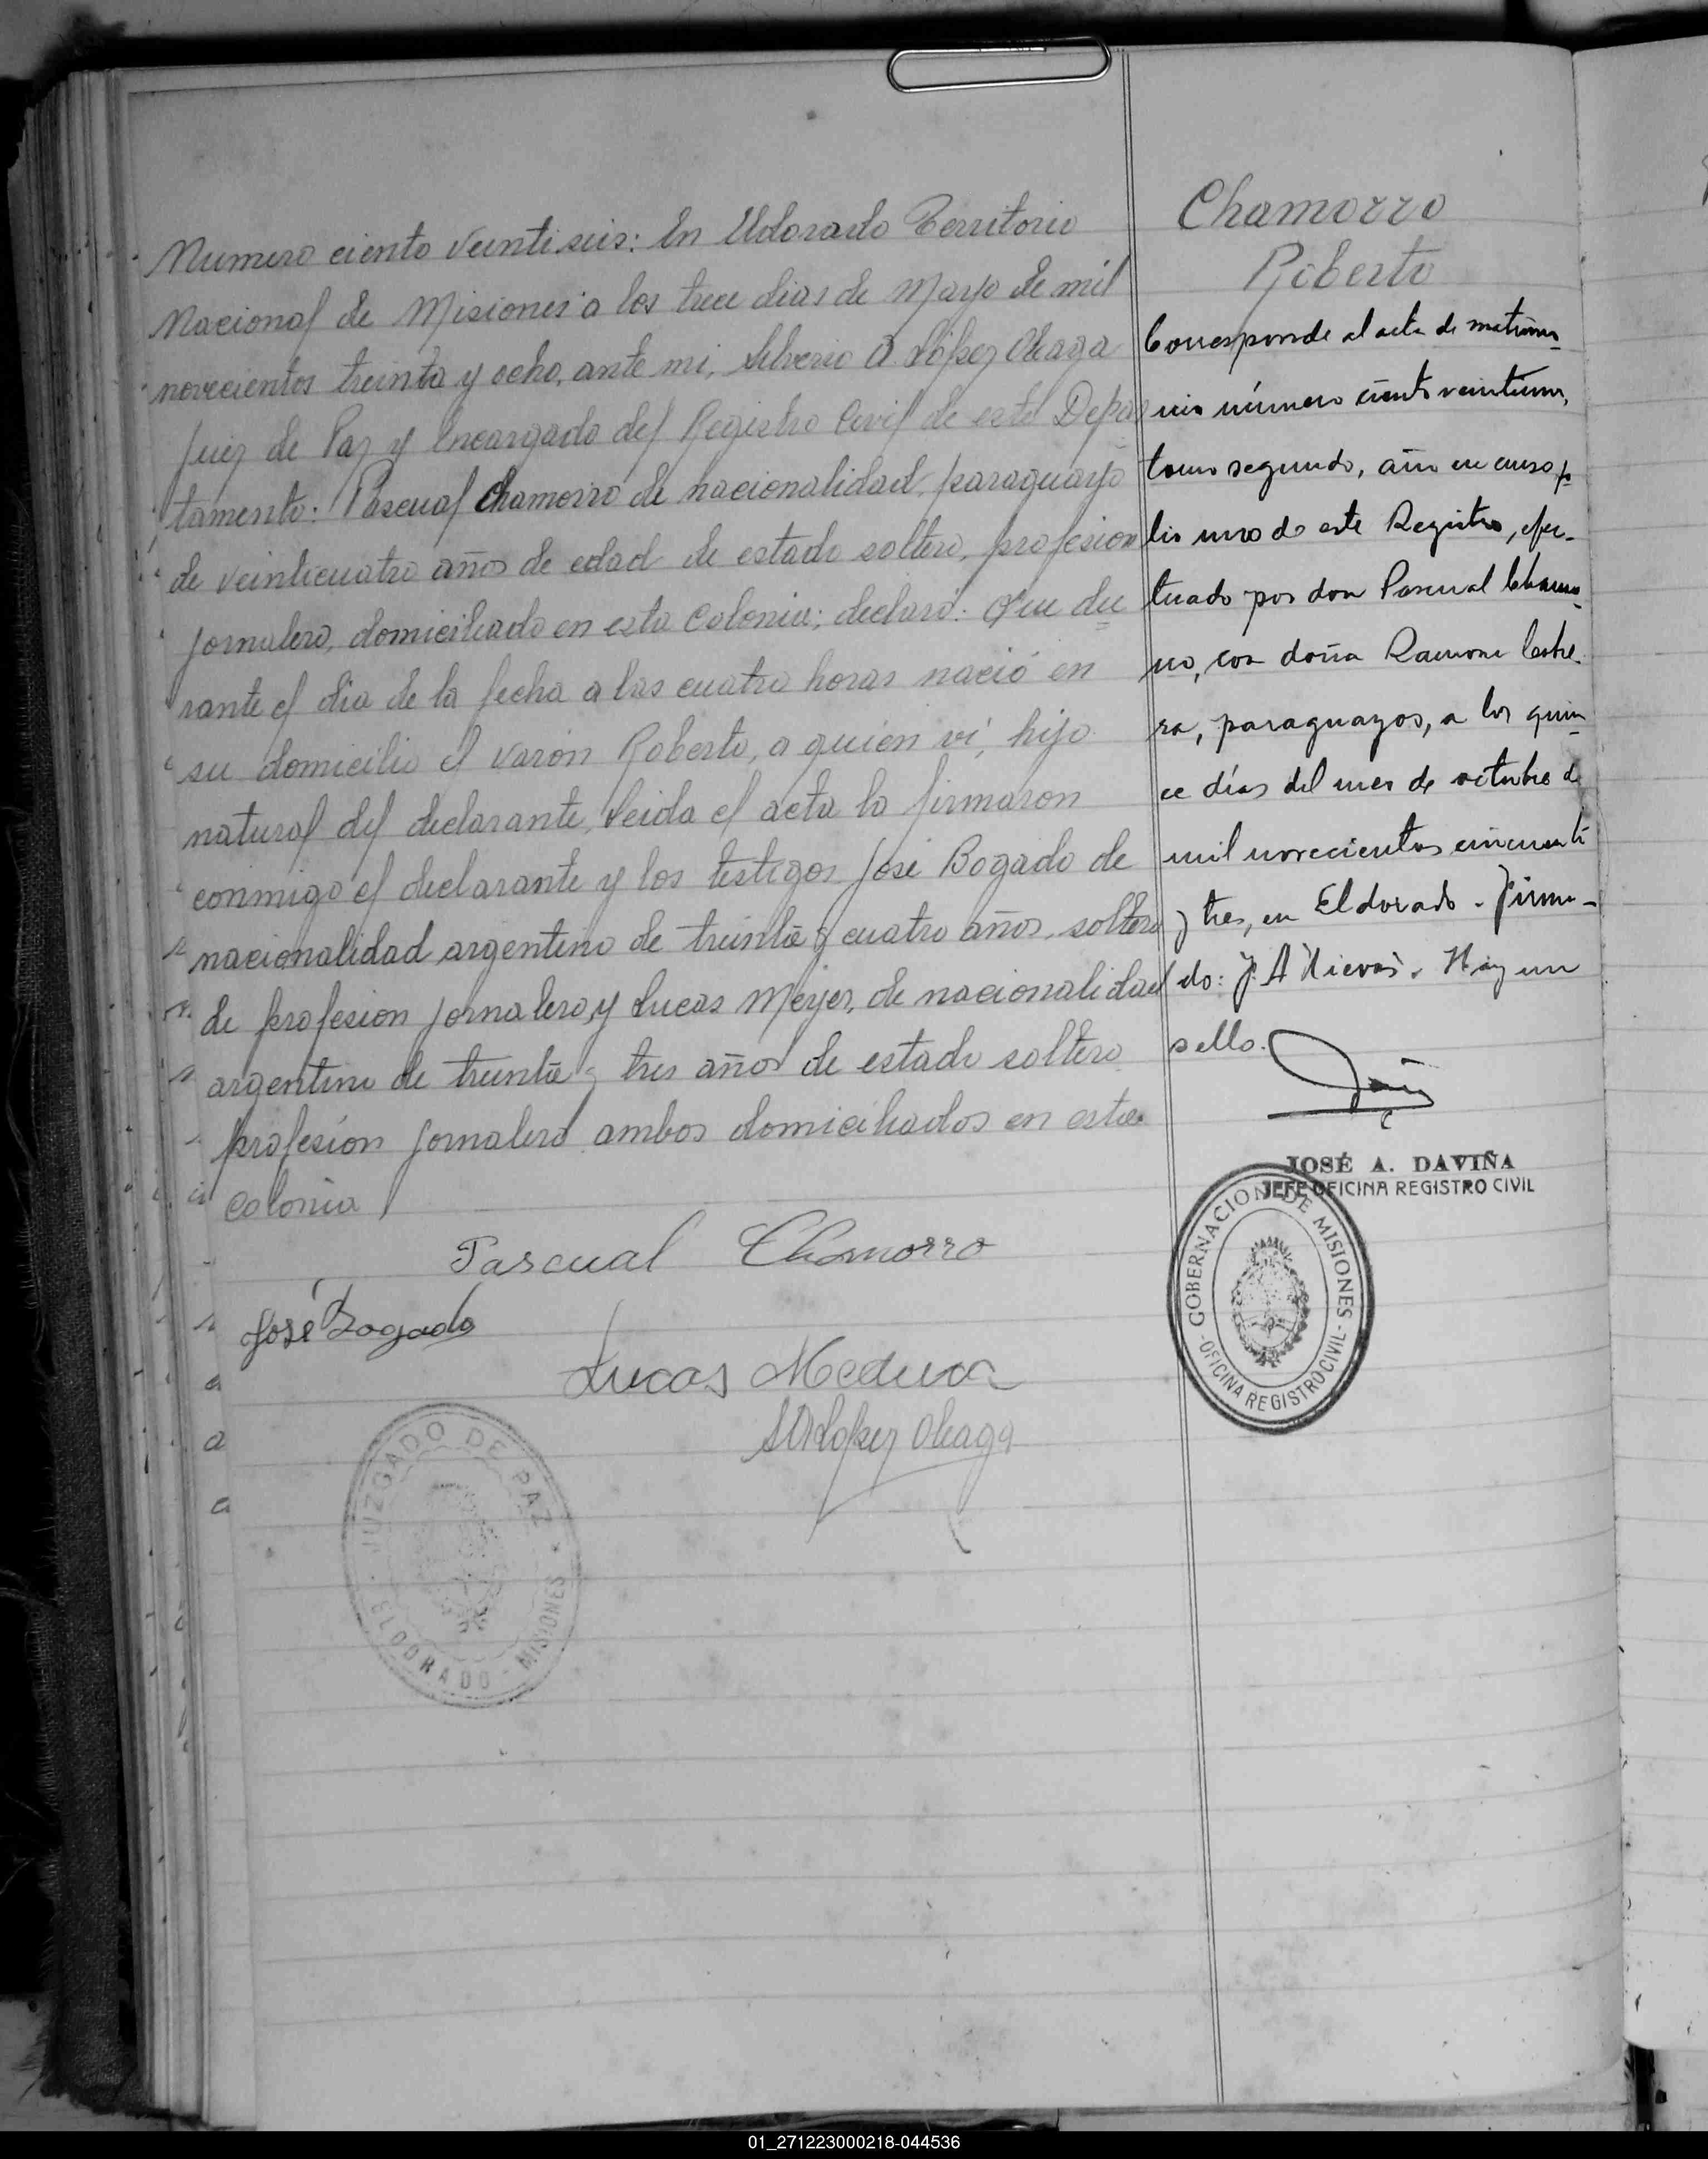 Numero ciento veintiseis: En Eldorado Territorio
Nacional de Misiones a los trece dias de Mayo de mil
novecientos treinta y ocho, ante mi, Silverio A. López Oleaga
Juez de Paz y Encargado del Registro Civil de este Depar
tamento: Pascual Chamorro de nacionalidad paraguayo
de veinticuatro años de edad de estado soltero, profesion
jornalero, domiciliado en esta Colonia; declaró: Que du
rante el dia de la fecha a las cuatro horas nació en
su domicilio el varón Roberto, a quien vi, hijo
natural del declarante, Leida el acta la firmaron
conmigo el declarante y los testigos José Bogado de
nacionalidad argentino de treinta y cuatro años, soltero
de profesion jornalero, y Lucas Meyer, de nacionalidad
argentino de treinta y tres años de estado soltero
profesión jornalero ambos domiciliados en esta
Colonia
Pascual Chamorro
José Bogado
Lucas
SALopez Oleaga
JUZGADO DE PAZ
ELDORADO - MISIONES
Chamorro
Roberto
Corresponde al acta de matrimo-
nio número ciento veintiuno,
tomo segundo, año en curso, fo-
lio uno de este Registro, efec-
tuado por don Pascual Chamo-
rro, con doña Ramona
ra, paraguayos, a los quin-
ce días del mes de octubre de
mil novecientos cincuenti
y tres, en Eldorado - Firma-
do: J. A Nieves. Hay un
sello.
JOSÉ A. DAVIÑA
JEFE OFICINA REGISTRO CIVIL
GOBERNACION DE MISIONES
- OFICINA REGISTRO CIVIL -
01_271223000218-044536